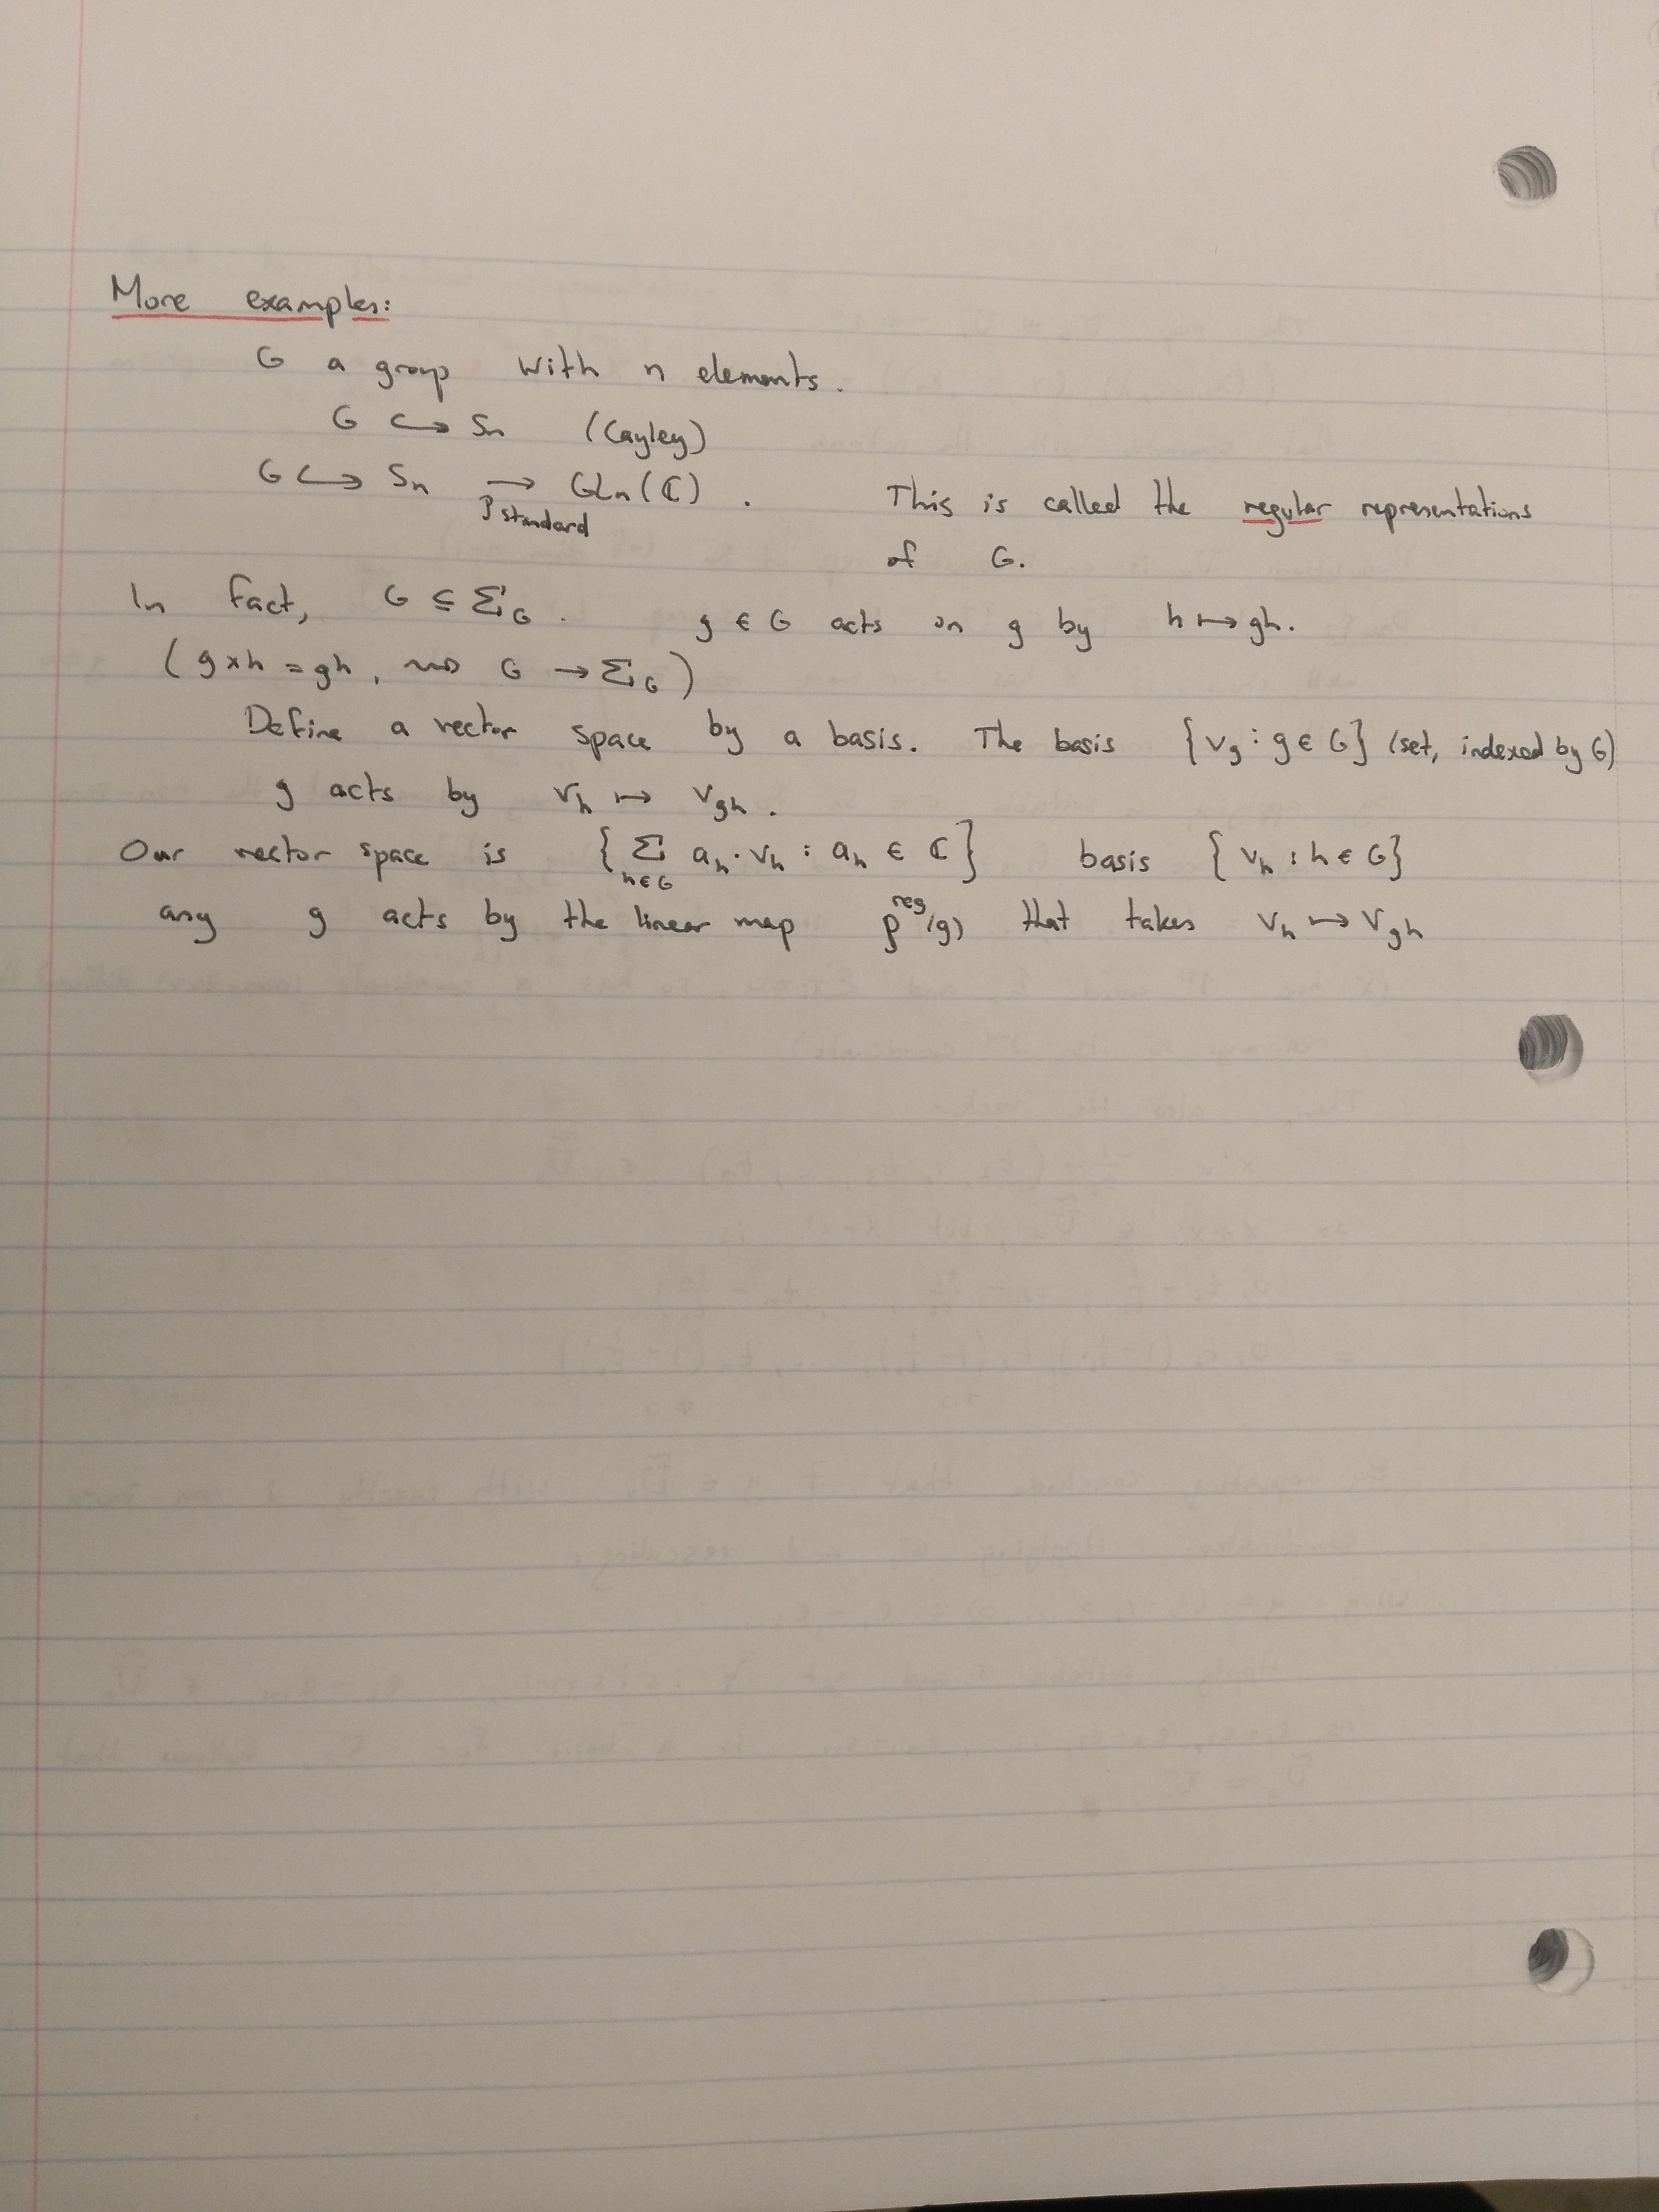 More examples:
G a group with n elements.
G ↪ Sn (Cayley)
G ↪ Sn → GLn(ℂ). This is called the regular representations
ρ standard
of G.
In fact, G ≤ Σ_G. g ∈ G acts on g by h ↦ gh.
(g*h = gh, ⇝ G → Σ_G)
Define a vector space by a basis. The basis {v_g : g ∈ G} (set, indexed by G)
g acts by v_h ↦ v_gh.
Our vector space is {Σ_{h∈G} a_h · v_h : a_h ∈ ℂ} basis {v_h : h ∈ G}
any g acts by the linear map ρ^reg(g) that takes v_h ↦ v_gh